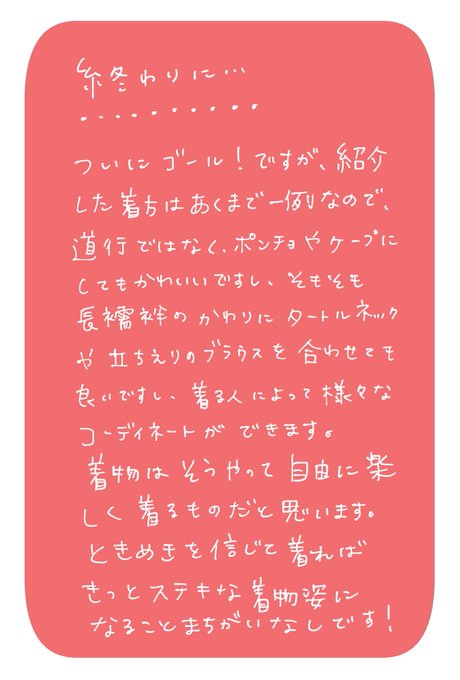 終わりに…
・・・・・・・・・・
ついにゴール！ですが、紹介
した着方はあくまで一例なので、
道行ではなく、ポンチョやケープに
してもかわいいですし、そもそも
長襦袢のかわりにタートルネック
や立ちえりのブラウスを合わせても
良いですし、着る人によって様々な
コーディネートができます。
着物はそうやって自由に楽
しく着るものだと思います。
ときめきを信じて着れば
きっとステキな着物姿に
なることまちがいなしです！